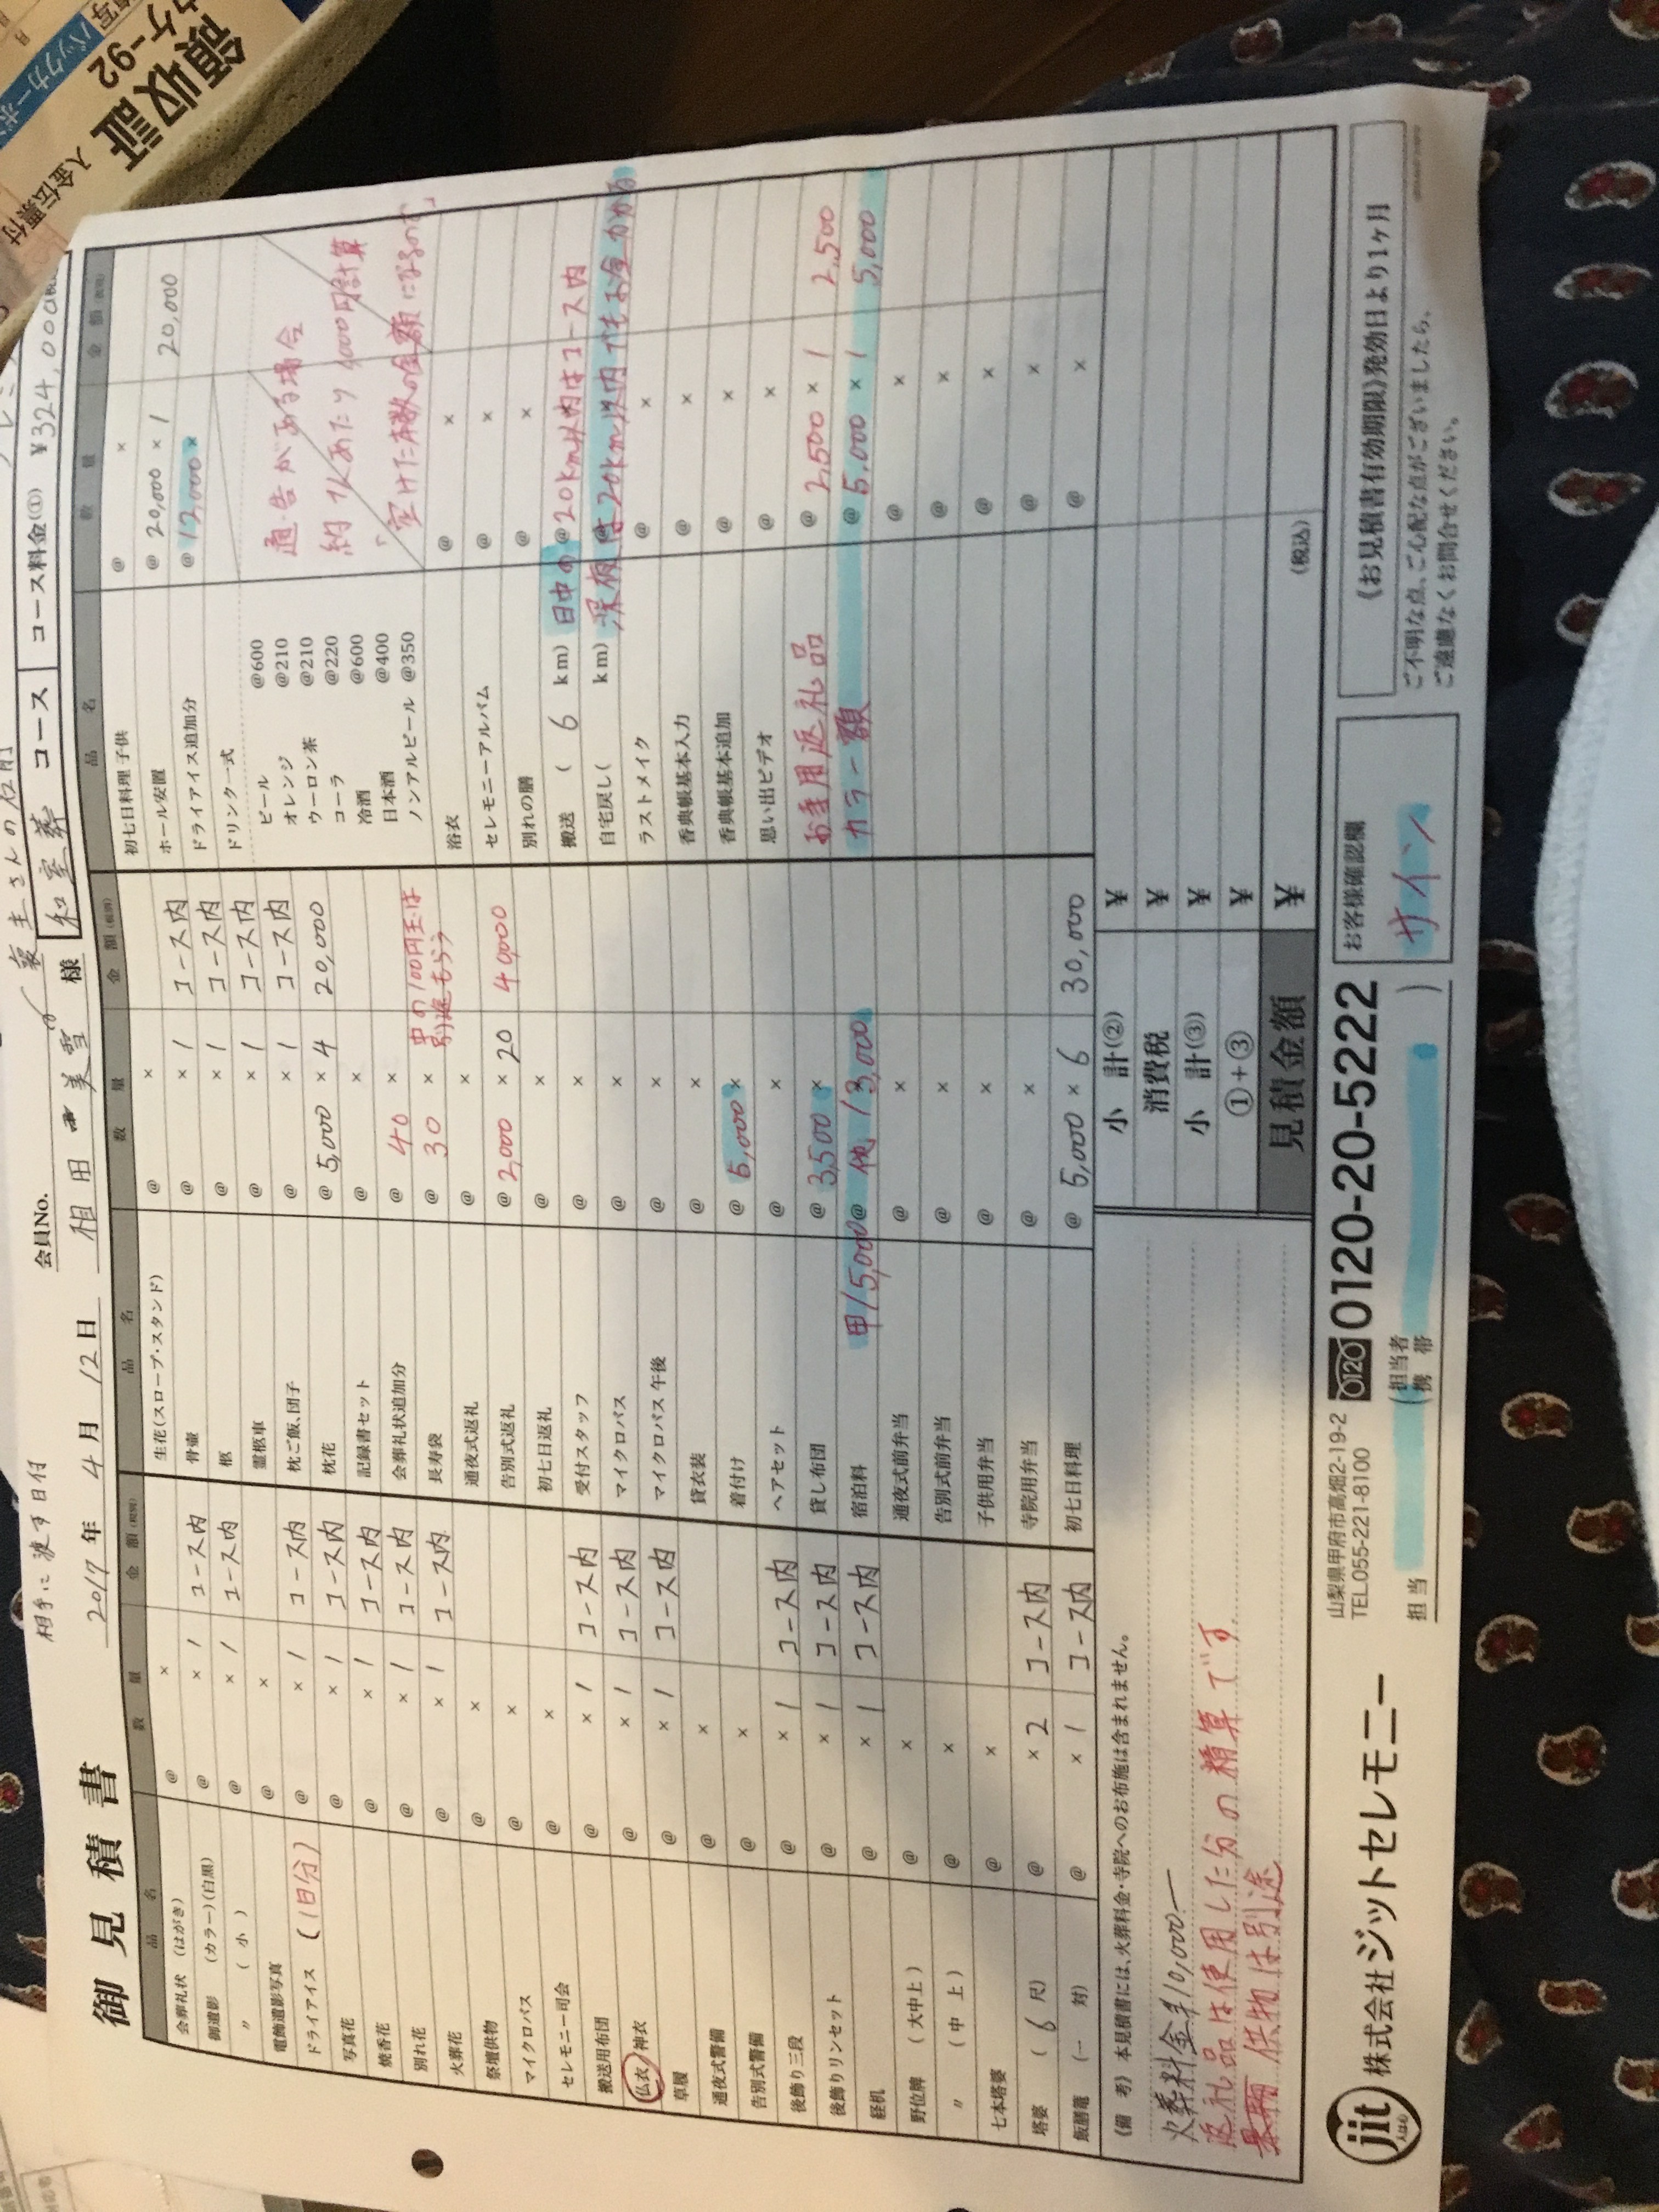 領収証
入金伝票付
ウケ-92
相手に渡す日付
喪主さんの名前
御見積書
2017年 4月 12日
会員No.
相田 美雪 様
和室葬 コース
コース料金(①) ¥324,000
品 名 数 量 金 額(税別)
会葬礼状 (はがき) @ ×
御遺影 (カラー)(白黒) @ × 1 コース内
〃 ( 小 ) @ × 1 コース内
電飾遺影写真 @ ×
ドライアイス (1日分) @ × 1 コース内
写真花 @ × 1 コース内
焼香花 @ × 1 コース内
別れ花 @ × 1 コース内
火葬花 @ × 1 コース内
祭壇供物 @ ×
マイクロバス @ ×
セレモニー司会 @ ×
搬送用布団 @ × 1 コース内
仏衣/神衣 @ × 1 コース内
草履 @ × 1 コース内
通夜式警備 @ ×
告別式警備 @ ×
後飾り三段 @ × 1 コース内
後飾りリンセット @ × 1 コース内
経机 @ × 1 コース内
野位牌 ( 大中上 ) @ ×
〃 ( 中 上 ) @ ×
七本塔婆 @ ×
塔婆 ( 6 尺) @ × 2 コース内
飯膳篭 (一 対) @ × 1 コース内
品 名 数 量 金 額(税別)
生花(スロープ・スタンド) @ ×
骨壷 @ × 1 コース内
柩 @ × 1 コース内
霊柩車 @ × 1 コース内
枕ご飯、団子 @ × 1 コース内
枕花 @ 5,000 × 4 20,000
記録書セット @ ×
会葬礼状追加分 @ 40 ×
長寿袋 @ 30 × 中の100円玉は
別途もらう
通夜式返礼 @ ×
告別式返礼 @ 2,000 × 20 40,000
初七日返礼 @ ×
受付スタッフ @ ×
マイクロバス @ ×
マイクロバス 午後 @ ×
貸衣装 @ ×
着付け @ 5,000 ×
ヘアセット @ ×
貸し布団 @ 3,500 ×
宿泊料 甲15,000 @ 他 13,000
通夜式前弁当 @ ×
告別式前弁当 @ ×
子供用弁当 @ ×
寺院用弁当 @ ×
初七日料理 @ 5,000 × 6 30,000
品 名 数 量 金 額(税別)
初七日料理 子供 @ ×
ホール安置 @ 20,000 × 1 20,000
ドライアイス追加分 @ 12,000 ×
ドリンク一式
ビール @600
オレンジ @210
ウーロン茶 @210
コーラ @220
冷酒 @600
日本酒 @400
ノンアルビール @350
通・告がある場合
約1人あたり1000円計算
「空けた本数の金額になるので」
浴衣 @ ×
セレモニーアルバム @ ×
別れの膳 @ ×
搬送 ( 6 km) 日中の@20km以内はコース内
自宅戻し( km) 深夜は20km以内でもお金かかる
ラストメイク @ ×
香典帳基本入力 @ ×
香典帳基本追加 @ ×
思い出ビデオ @ ×
お車用返礼品 @ 2,500 × 1 2,500
カラー額 @ 5,000 × 1 5,000
@ ×
@ ×
@ ×
@ ×
@ ×
(備 考) 本見積書には、火葬料金・寺院へのお布施は含まれません。
火葬料金 ¥10,000ー
返礼品は使用した分の精算です
供物は別途
小 計(②) ¥
消費税 ¥
小 計(③) ¥
①+③ ¥
見積金額 ¥ (税込)
jit
株式会社ジットセレモニー
山梨県甲府市高畑2-19-2
TEL.055-221-8100
0120 0120-20-5222
担当 (担当者携帯 )
お客様確認欄
サイン
《お見積書有効期限》発効日より1ヶ月
ご不明な点、ご心配な点がございましたら、
ご遠慮なくお問合せください。